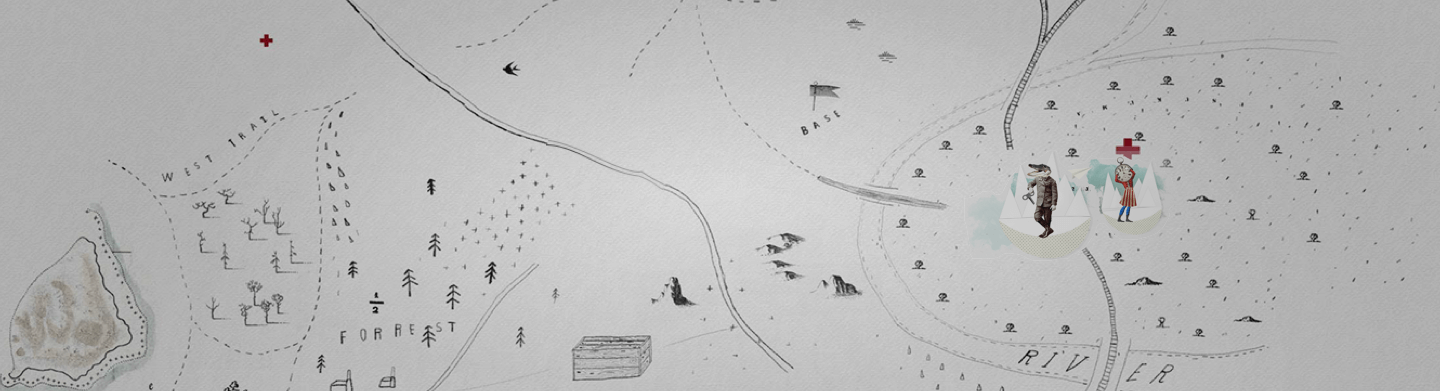 WEST TRAIL
BASE
1/2
FORREST
RIVER